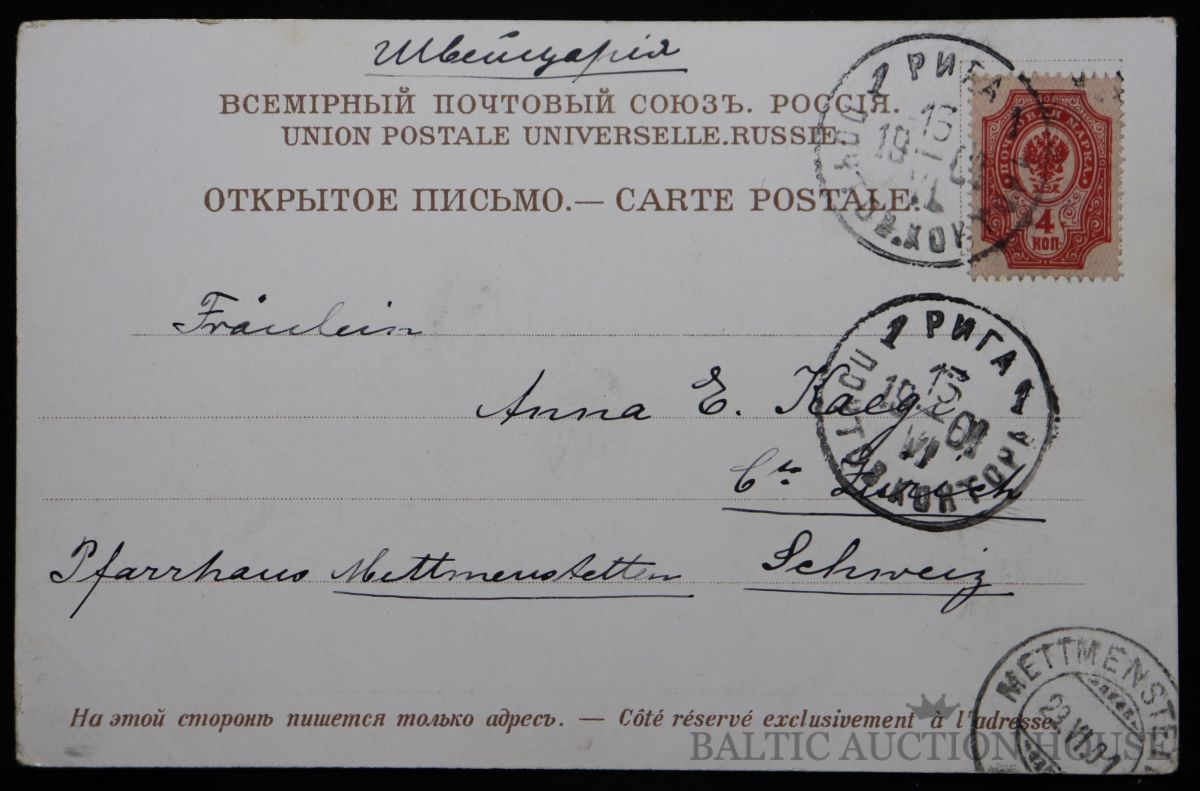 Швейцарія
ВСЕМІРНЫЙ ПОЧТОВЫЙ СОЮЗЪ. РОССІЯ.
UNION POSTALE UNIVERSELLE. RUSSIE.
ОТКРЫТОЕ ПИСЬМО.— CARTE POSTALE.
1 РИГА 1
ПОЧТОВАЯ МАРКА.
4
КОП.
Fräulein
Anna E. Kaegi
Ct. Zürich
Pfarrhaus Mettmenstetten Schweiz
1 РИГА 1
15
19 01
VI
ПОЧТОВ. КОНТОРА
METTMENSTET
VI.01
На этой сторонѣ пишется только адресъ. — Côté réservé exclusivement à l'adresse.
BALTIC AUCTION HOUSE